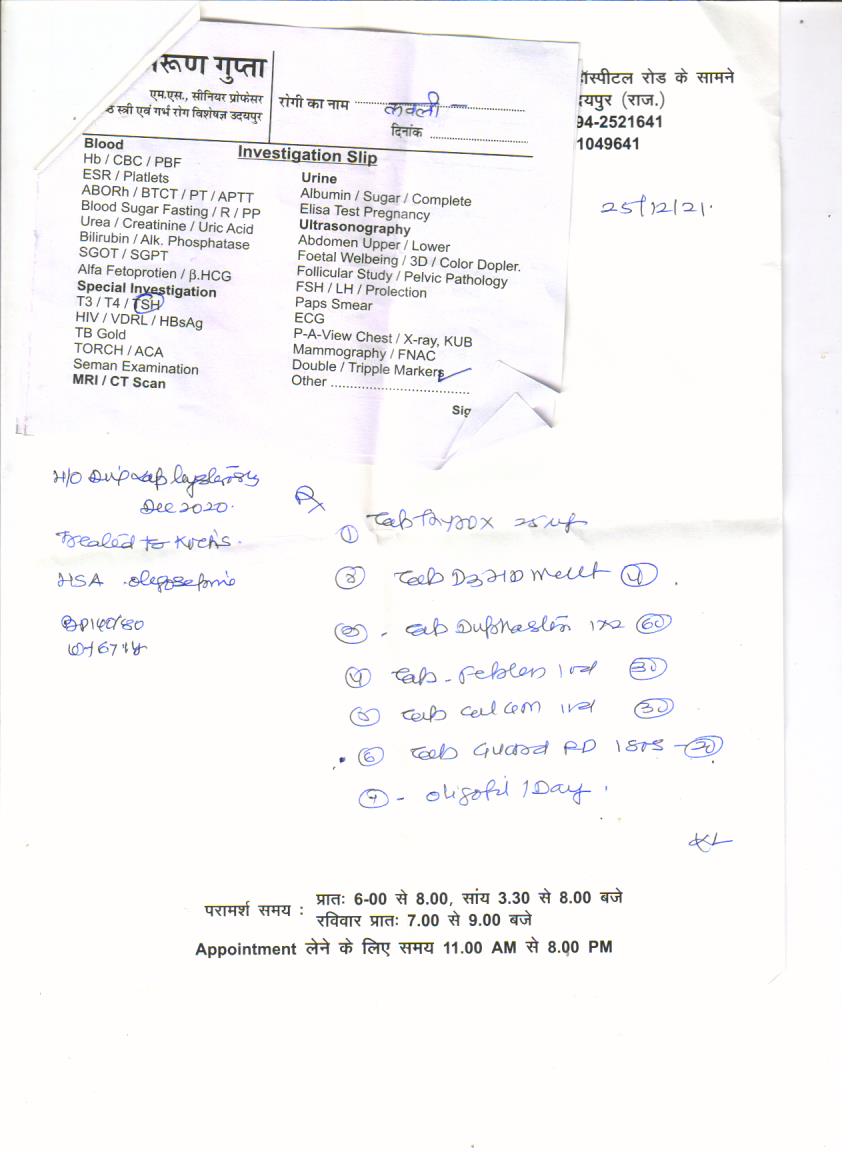 रूण गुप्ता
एम.एस., सीनियर प्रोफेसर
स्त्री एवं गर्भ रोग विशेषज्ञ उदयपुर
रोगी का नाम
दिनांक
Investigation Slip
Blood
Hb / CBC / PBF
ESR / Platlets
ABORh / BTCT / PT / APTT
Blood Sugar Fasting / R / PP
Urea / Creatinine / Uric Acid
Bilirubin / Alk. Phosphatase
SGOT / SGPT
Alfa Fetoprotien / β.HCG
Special Investigation
T3 / T4 / TSH
HIV / VDRL / HBsAg
TB Gold
TORCH / ACA
Seman Examination
MRI / CT Scan
Urine
Albumin / Sugar / Complete
Elisa Test Pregnancy
Ultrasonography
Abdomen Upper / Lower
Foetal Welbeing / 3D / Color Dopler.
Follicular Study / Pelvic Pathology
FSH / LH / Prolection
Paps Smear
ECG
P-A-View Chest / X-ray, KUB
Mammography / FNAC
Double / Tripple Markers
Other
Sig
हॉस्पीटल रोड के सामने
दयपुर (राज.)
94-2521641
1049641
25/12/21.
H/O
Dec 2020.
Treated to Koch's.
HSA
BP 140/80
Rx
① Tab Thyrox 25
② Tab D3 ④
③ Tab Duphaston 1x2 ⑥⓪
④ Tab 1 od ③⓪
⑤ Tab ③⓪
⑥ Tab Guard RD
⑦ - 1 Day.
परामर्श समय : प्रातः 6-00 से 8.00, सांय 3.30 से 8.00 बजे
रविवार प्रातः 7.00 से 9.00 बजे
Appointment लेने के लिए समय 11.00 AM से 8.00 PM